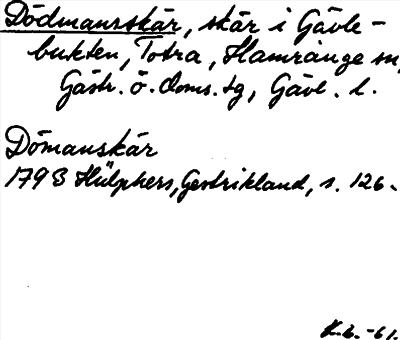 Dödmanskär, skär i Gävle-
bukten, Totra, Hamrånge sn,
Gästr. ö. doms. tg, Gävl. l.
Dömanskär
1793 Hülphers, Gestrikland, s. 126.
K.L. -61.